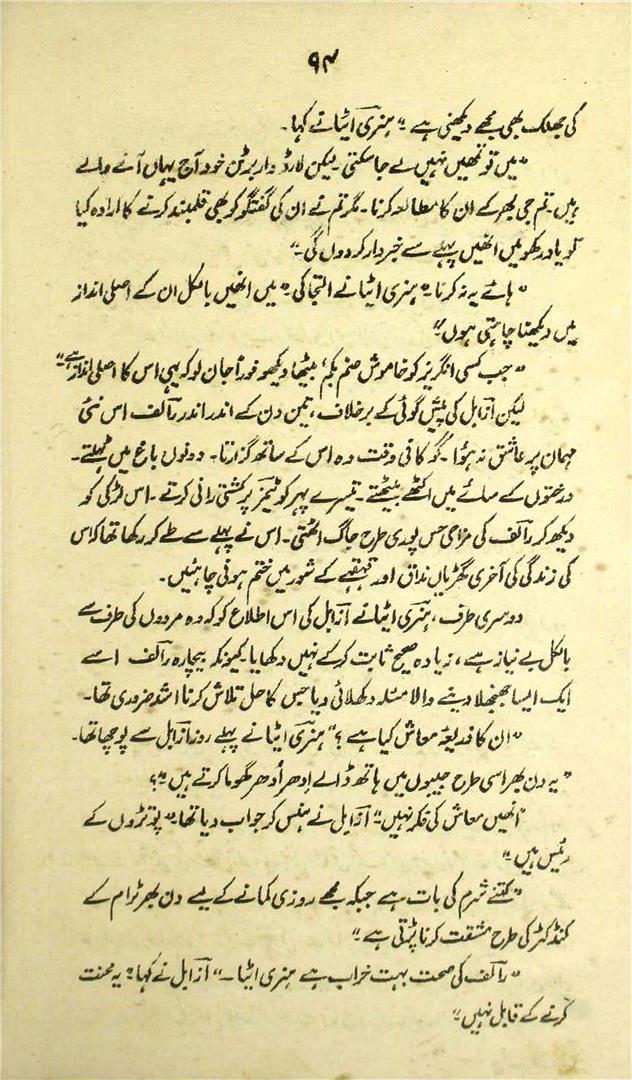 ۹۴
کی جھلک بھی مجھے دیکھنی ہے ۔" ہنری آئیٹا نے کہا ۔
"میں تو تمھیں نہیں لے جا سکتی ۔ لیکن لارڈ واربرٹن خود آج یہاں آنے والے
ہیں ۔ تم جی بھر کے ان کا مطالعہ کرنا ۔ مگر تم نے ان کی گفتگو کو بھی قلمبند کرنے کا ارادہ کیا
تو یاد رکھو میں انھیں پہلے سے خبردار کر دوں گی ۔"
"ہائے یہ نہ کرنا ۔" ہنری ایٹا نے التجا کی ۔ "میں انھیں بالکل ان کے اصلی انداز
میں دیکھنا چاہتی ہوں ۔"
"جب کسی انگریز کو خاموش صنم بکم، بیٹھا دیکھو فوراً جان لو کہ یہی اس کا اصلی انداز ہے ۔"
لیکن ازابل کی پیش گوئی کے برخلاف، تین دن کے اندر اندر رآلف اس نئی
مہمان پر عاشق نہ ہوا ۔ گو کافی وقت وہ اس کے ساتھ گزارتا ۔ دونوں باغ میں ٹہلتے ۔
درختوں کے سائے میں اکٹھے بیٹھتے ۔ تیسرے پہر کو ٹیمز پر کشتی رانی کرتے ۔ اس لڑکی کو
دیکھ کر رآلف کی مزاحی حس پوری طرح جاگ اٹھتی ۔ اس نے پہلے سے طے کر رکھا تھا کہ اس
کی زندگی کی آخری گھڑیاں مذاق اور قہقہے کے شور میں ختم ہونی چاہئیں ۔
دوسری طرف، ہنری ایٹا نے ازابل کی اس اطلاع کو کہ وہ مردوں کی طرف سے
بالکل بے نیاز ہے، زیادہ صحیح ثابت کر کے نہیں دکھایا ۔ کیونکہ بیچارہ رآلف اسے
ایک ایسا جھنجھلا دینے والا مسئلہ دکھلائی دیا جس کا حل تلاش کرنا اشد ضروری تھا ۔
"ان کا ذریعۂ معاش کیا ہے ؟" ہنری ایٹا نے پہلے روز ازابل سے پوچھا تھا ۔
"یہ دن بھر اسی طرح جیبوں میں ہاتھ ڈالے اِدھر اُدھر گھوما کرتے ہیں ؟"
"انھیں معاش کی فکر نہیں ۔" آزابل نے ہنس کر جواب دیا تھا ۔ "پوتڑوں کے
رئیس ہیں ۔"
"کتنے شرم کی بات ہے جبکہ مجھے روزی کمانے کے لیے دن بھر ٹرام کے
کنڈکٹر کی طرح مشقت کرنا پڑتی ہے ۔"
"رآلف کی صحت بہت خراب ہے ہنری ایٹا ۔" آزابل نے کہا ۔ "یہ محنت
کرنے کے قابل نہیں ۔"